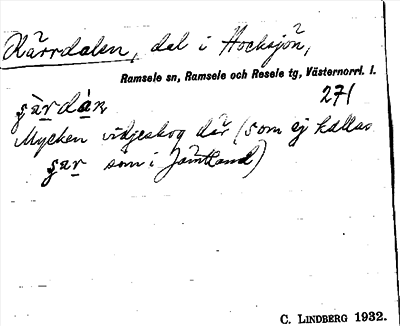 Kärrdalen, del i Hocksjön,
Ramsele sn, Ramsele och Resele tg, Västernorrl. l.
271
Mycken vidjeskog där (som ej kallas
som i Jämtland)
C. LINDBERG 1932.